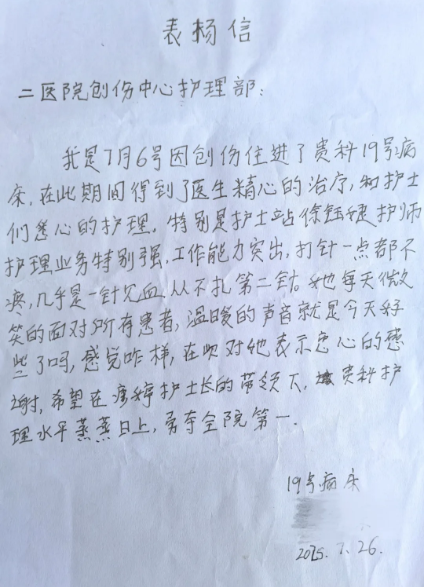 表扬信
二医院创伤中心护理部:
我是7月6号因创伤住进了贵科19号病
床,在此期间得到了医生精心的治疗,和护士
们悉心的护理。特别是护士站徐钰婕护师
护理业务特别强,工作能力突出,打针一点都不
疼,几乎是一针见血,从不扎第二针。她每天微
笑的面对所有患者,温暖的声音就是今天好
些了吗,感觉咋样,在此对她表示衷心的感
谢,希望在护士长的带领下,贵科护
理水平蒸蒸日上,勇夺全院第一.
19号病床
2025.7.26.